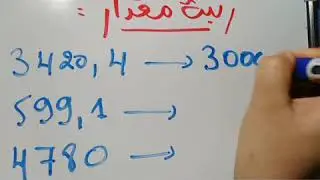 رتبة مقدار :
3420,4 → 3000
599,1 →
4780 →